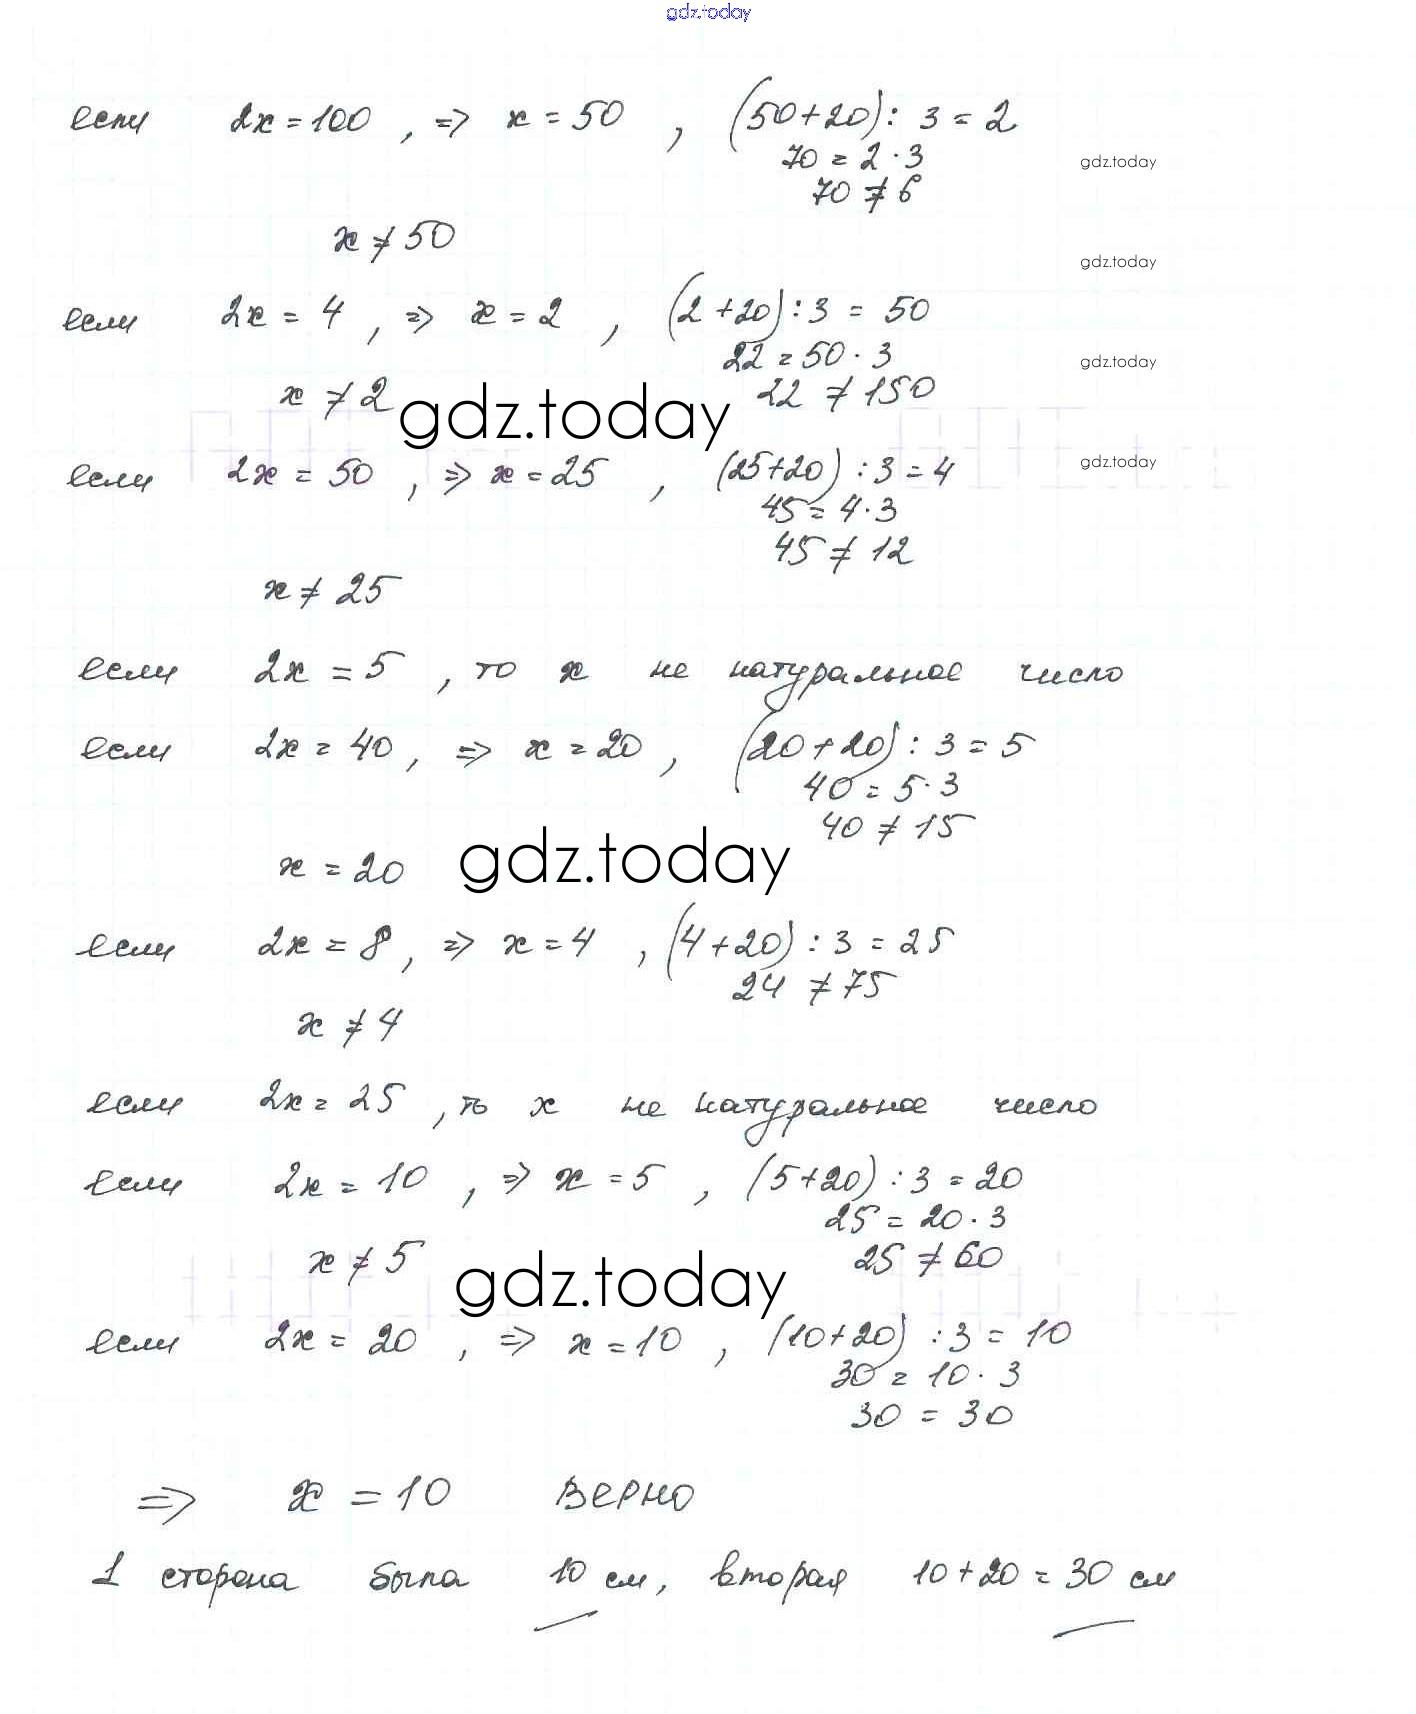 gdz.today
если 2x = 100 , => x = 50 , (50+20) : 3 = 2
70 = 2 · 3
gdz.today
70 ≠ 6
x ≠ 50
gdz.today
если 2x = 4 , => x = 2 , (2 + 20) : 3 = 50
22 = 50 · 3
gdz.today
x ≠ 2
22 ≠ 150
gdz.today
если 2x = 50 , => x = 25 , (25+20) : 3 = 4
gdz.today
45 = 4 · 3
45 ≠ 12
x ≠ 25
если 2x = 5 , то x не натуральное число
если 2x = 40 , => x = 20 , (20+20) : 3 = 5
40 = 5 · 3
40 ≠ 15
x = 20
gdz.today
если 2x = 8 , => x = 4 , (4+20) : 3 = 25
24 ≠ 75
x ≠ 4
если 2x = 25 , то x не натуральное число
если 2x = 10 , => x = 5 , (5+20) : 3 = 20
25 = 20 · 3
x ≠ 5
25 ≠ 60
gdz.today
если 2x = 20 , => x = 10 , (10+20) : 3 = 10
30 = 10 · 3
30 = 30
=> x = 10 верно
1 сторона была 10 см, вторая 10 + 20 = 30 см